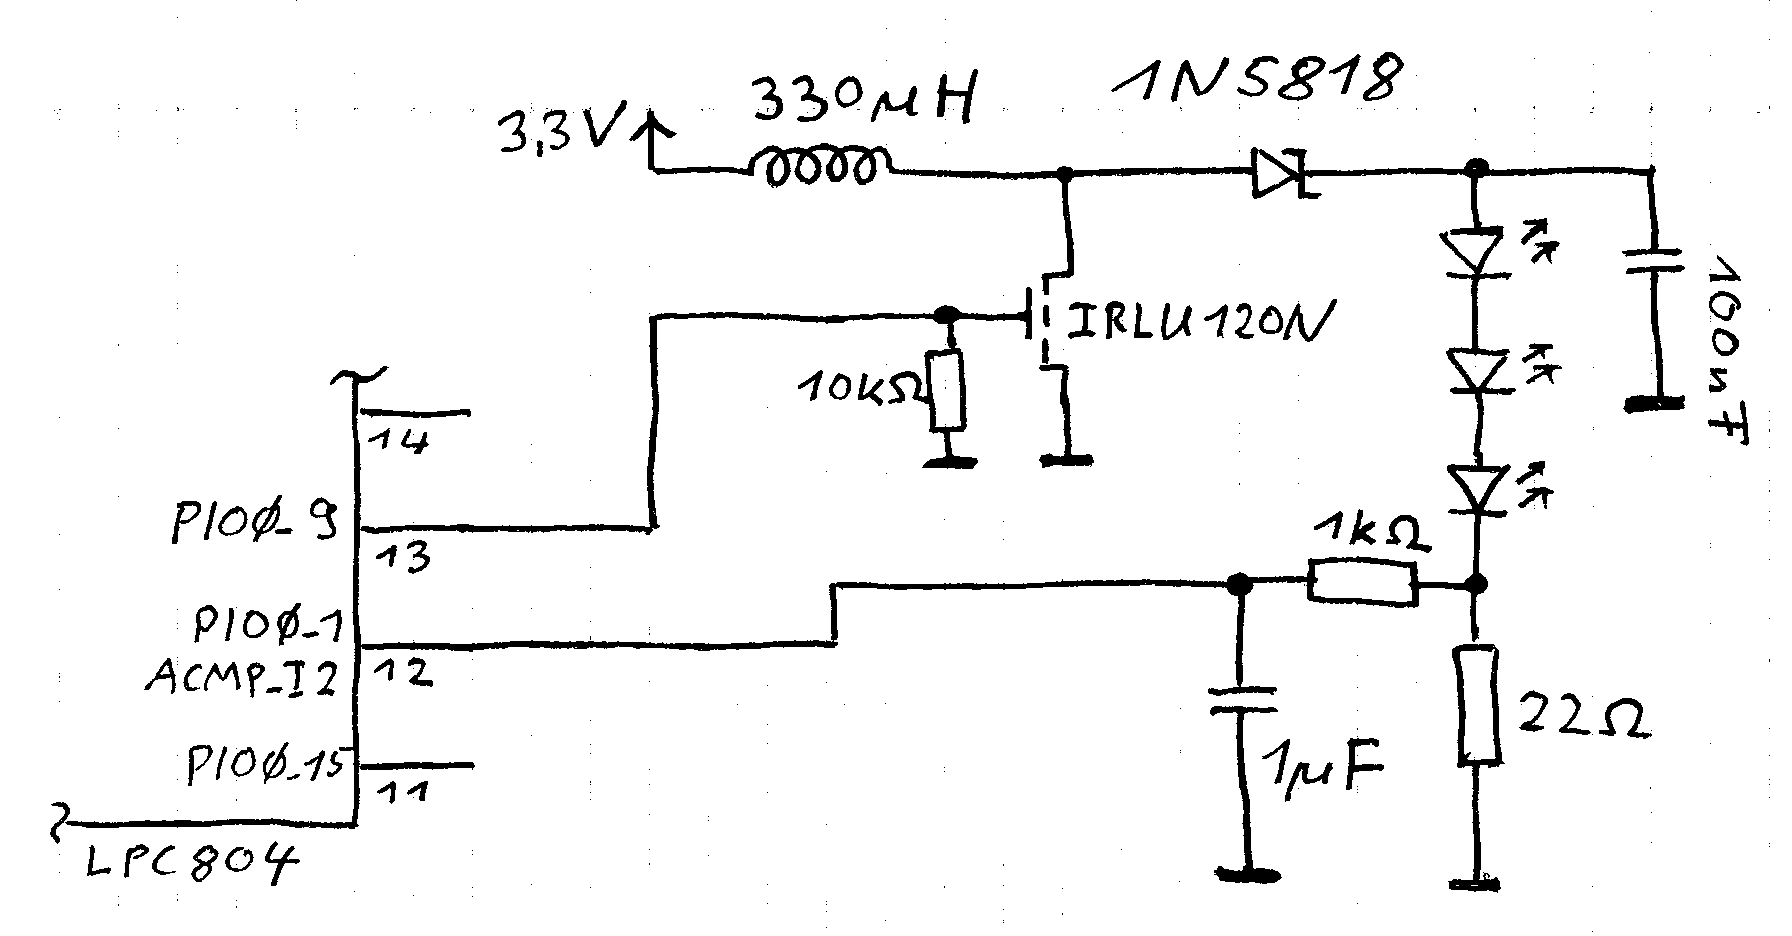 1N5818
330µH
3,3V
IRLU120N
10kΩ
100nF
14
PIO0_9
13
1kΩ
PIO0_1
ACMP_I2
12
22Ω
PIO0_15
11
1µF
LPC804